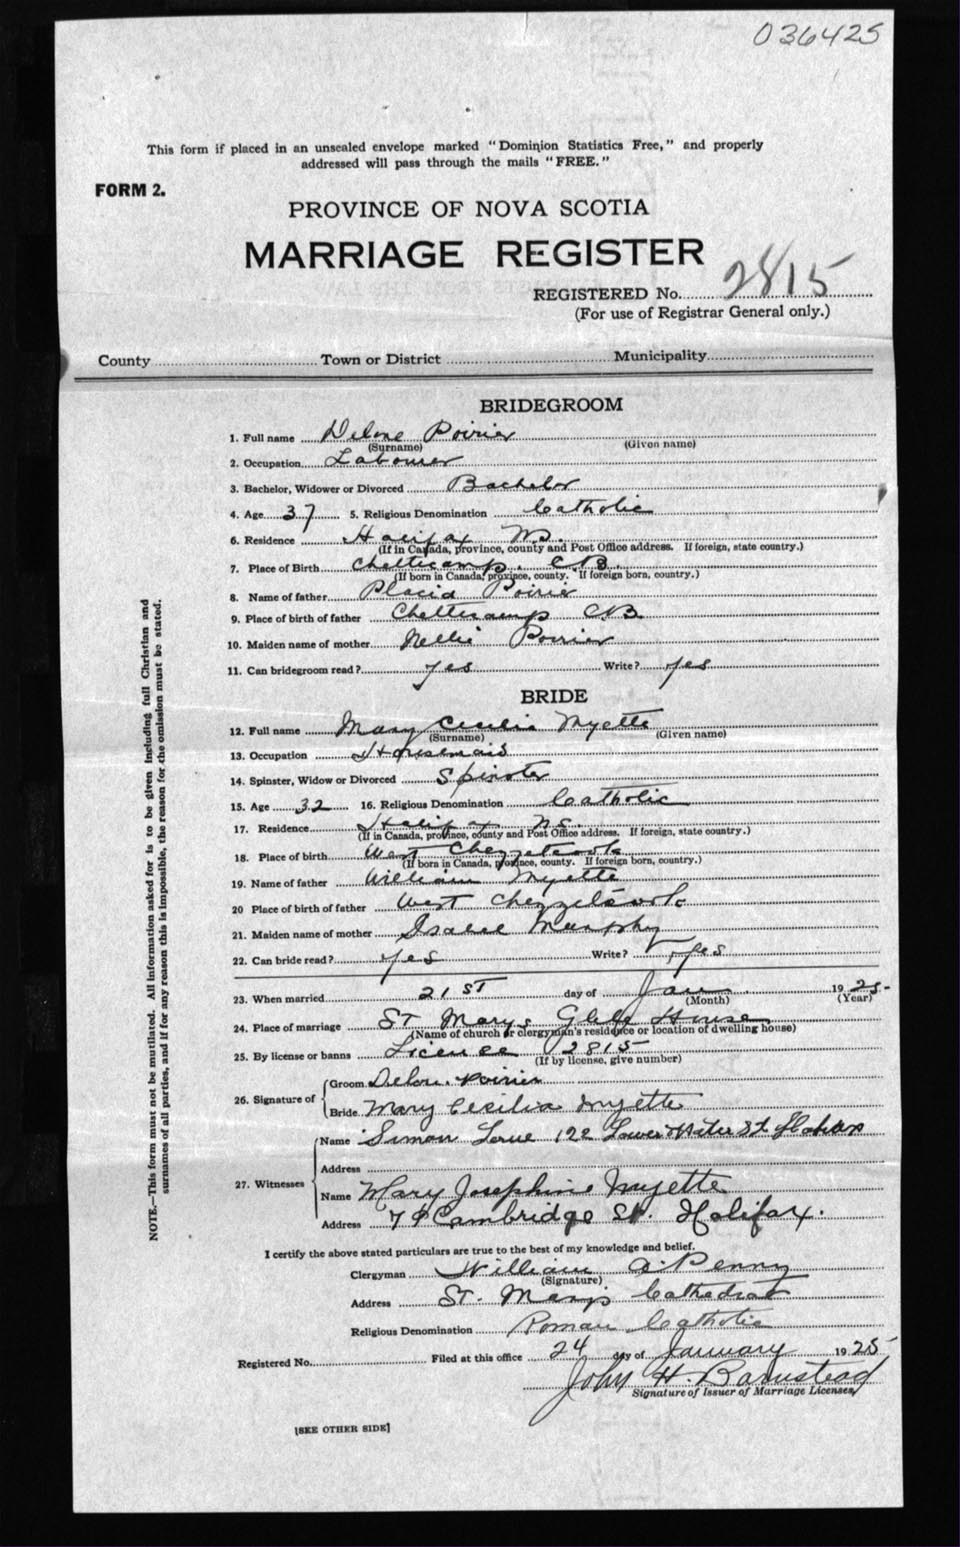 036425
This form if placed in an unsealed envelope marked "Dominion Statistics Free," and properly
addressed will pass through the mails "FREE."
FORM 2.
PROVINCE OF NOVA SCOTIA
MARRIAGE REGISTER
REGISTERED No. 2815
(For use of Registrar General only.)
County Town or District Municipality
BRIDEGROOM
1. Full name Delore Poirier
(Surname) (Given name)
2. Occupation Labourer
3. Bachelor, Widower or Divorced Bachelor
4. Age 37 5. Religious Denomination Catholic
6. Residence Halifax N.S.
(If in Canada, province, county and Post Office address. If foreign, state country.)
7. Place of Birth Chetticamp. C.B.
(If born in Canada, province, county. If foreign born, country.)
8. Name of father Placid Poirier
9. Place of birth of father Chetticamp CB
10. Maiden name of mother Nellie Poirier
11. Can bridegroom read? yes Write? yes
BRIDE
12. Full name Mary Cecilia Myette
(Surname) (Given name)
13. Occupation Housemaid
14. Spinster, Widow or Divorced Spinster
15. Age 32 16. Religious Denomination Catholic
17. Residence Halifax N.S.
(If in Canada, province, county and Post Office address. If foreign, state country.)
18. Place of birth West Chezzetcook
(If born in Canada, province, county. If foreign born, country.)
19. Name of father William Myette
20 Place of birth of father West Chezzetcook
21. Maiden name of mother Isabel Murphy
22. Can bride read? yes Write? yes
23. When married 21st day of Jan 1925-
(Month) (Year)
24. Place of marriage St Marys Glebe House
(Name of church or clergyman's residence or location of dwelling house)
25. By license or banns Licence 2815
(If by license, give number)
26. Signature of
Groom Delore Poirier
Bride Mary Cecilia Myette
27. Witnesses
Name Simon 122 Lower Water St Halifax
Address
Name Mary Josephine Myette
Address Cambridge St. Halifax.
I certify the above stated particulars are true to the best of my knowledge and belief.
Clergyman William A. Penny
(Signature)
Address St. Mary's Cathedral
Religious Denomination Roman Catholic
Registered No. Filed at this office 24 day of January 1925
John H. Barnstead
Signature of Issuer of Marriage Licenses
[SEE OTHER SIDE]
NOTE.—This form must not be mutilated. All information asked for is to be given including full Christian and
surnames of all parties, and if for any reason this is impossible, the reason for the omission must be stated.